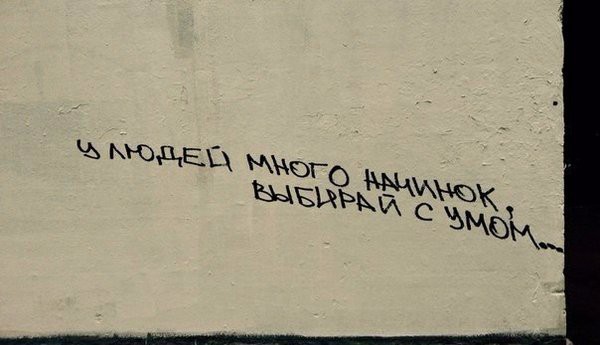 у людей много начинок,
выбирай с умом...